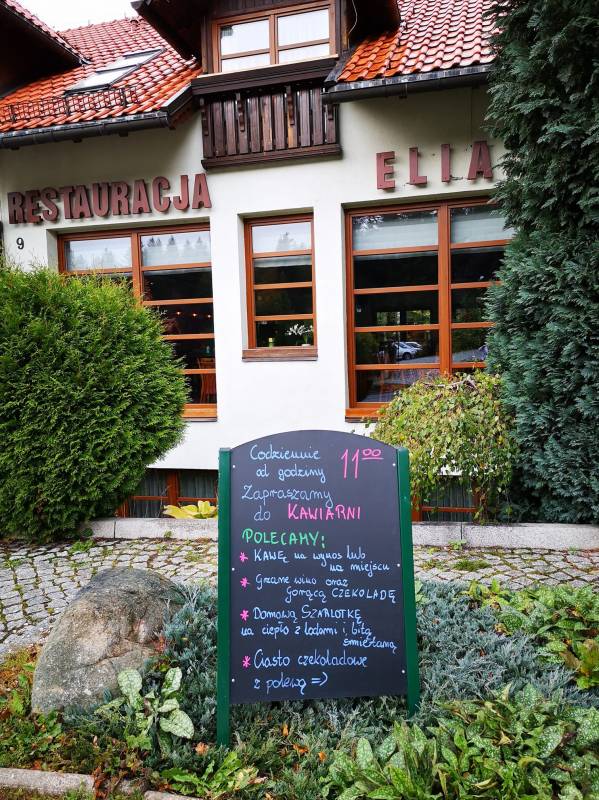 RESTAURACJA ELIA
9
Codziennie
od godziny 11 00
Zapraszamy
do KAWIARNI
POLECAMY:
* KAWĘ na wynos lub
na miejscu
* Grzane wino oraz
Gorącą CZEKOLADĘ
* Domową SZARLOTKĘ
na ciepło z lodami i bitą
śmietaną
* Ciasto czekoladowe
z polewą =)